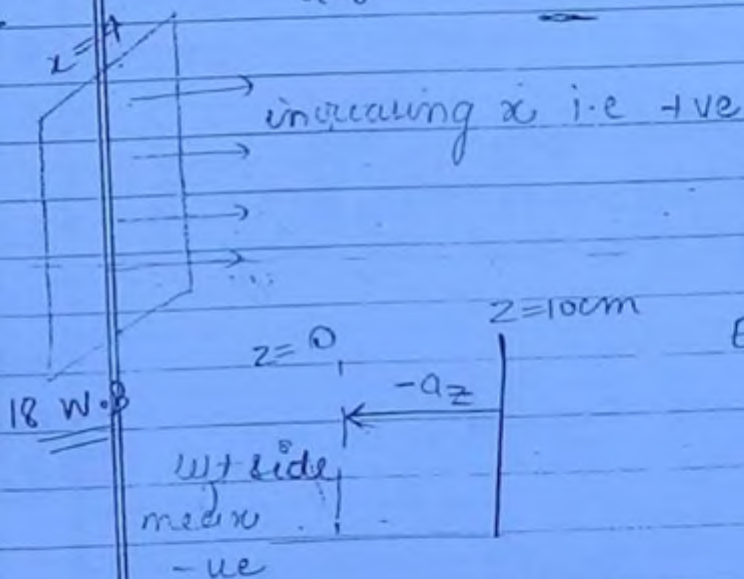 x=4
increasing x i.e +ve
z=10cm
z=0
-az
18 W.B
side
mean
-ve